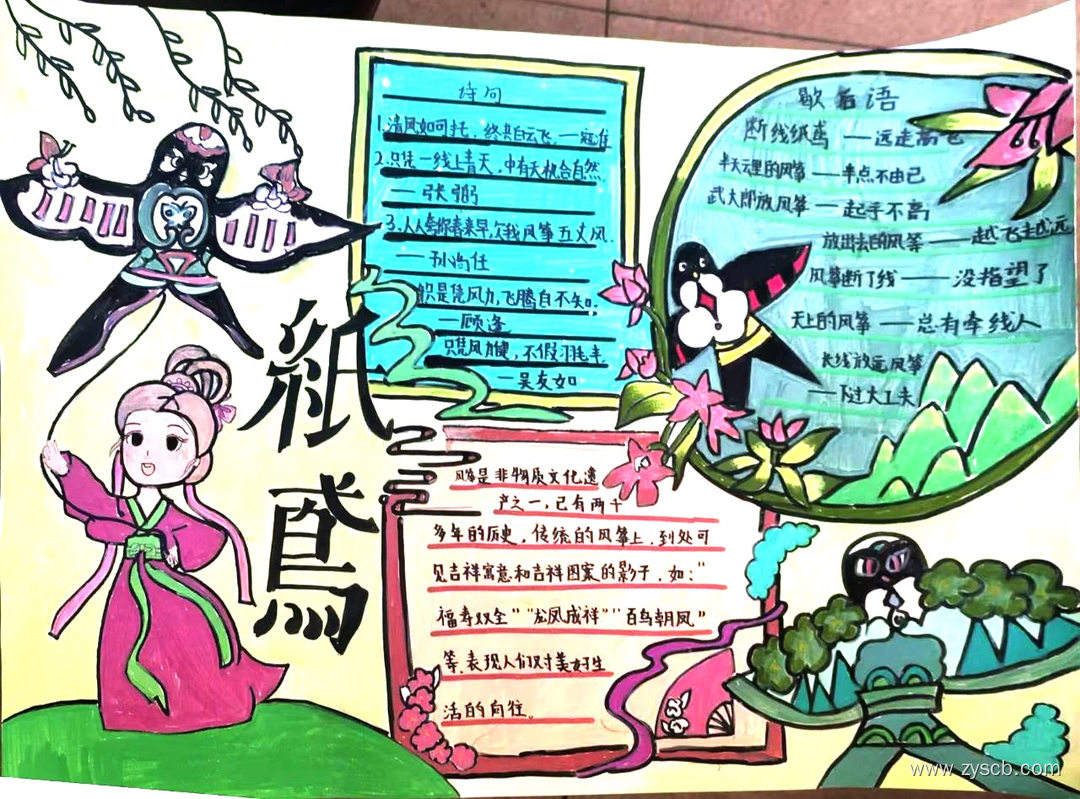 紙
鳶
诗句
1.清风如可托，终共白云飞。—寇准
2.只凭一线上青天，中有天机合自然。
—张弼
3.人人夸你春来早，欠我风筝五丈风。
—孙尚任
是凭风力，飞腾自不知。
—顾逢
只凭风力健，不假羽毛丰
—吴友如
歇后语
断线纸鸢——远走高飞
半天云里的风筝——半点不由己
武大郎放风筝——起手不高
放出去的风筝——越飞越远
风筝断了线——没指望了
天上的风筝——总有牵线人
长线放远风筝
—下过大工夫
风筝是非物质文化遗
产之一，已有两千
多年的历史，传统的风筝上，到处可
见吉祥寓意和吉祥图案的影子，如："
福寿双全""龙凤成祥""百鸟朝凤"
等，表现人们对美好生
活的向往。
www.zyscb.com